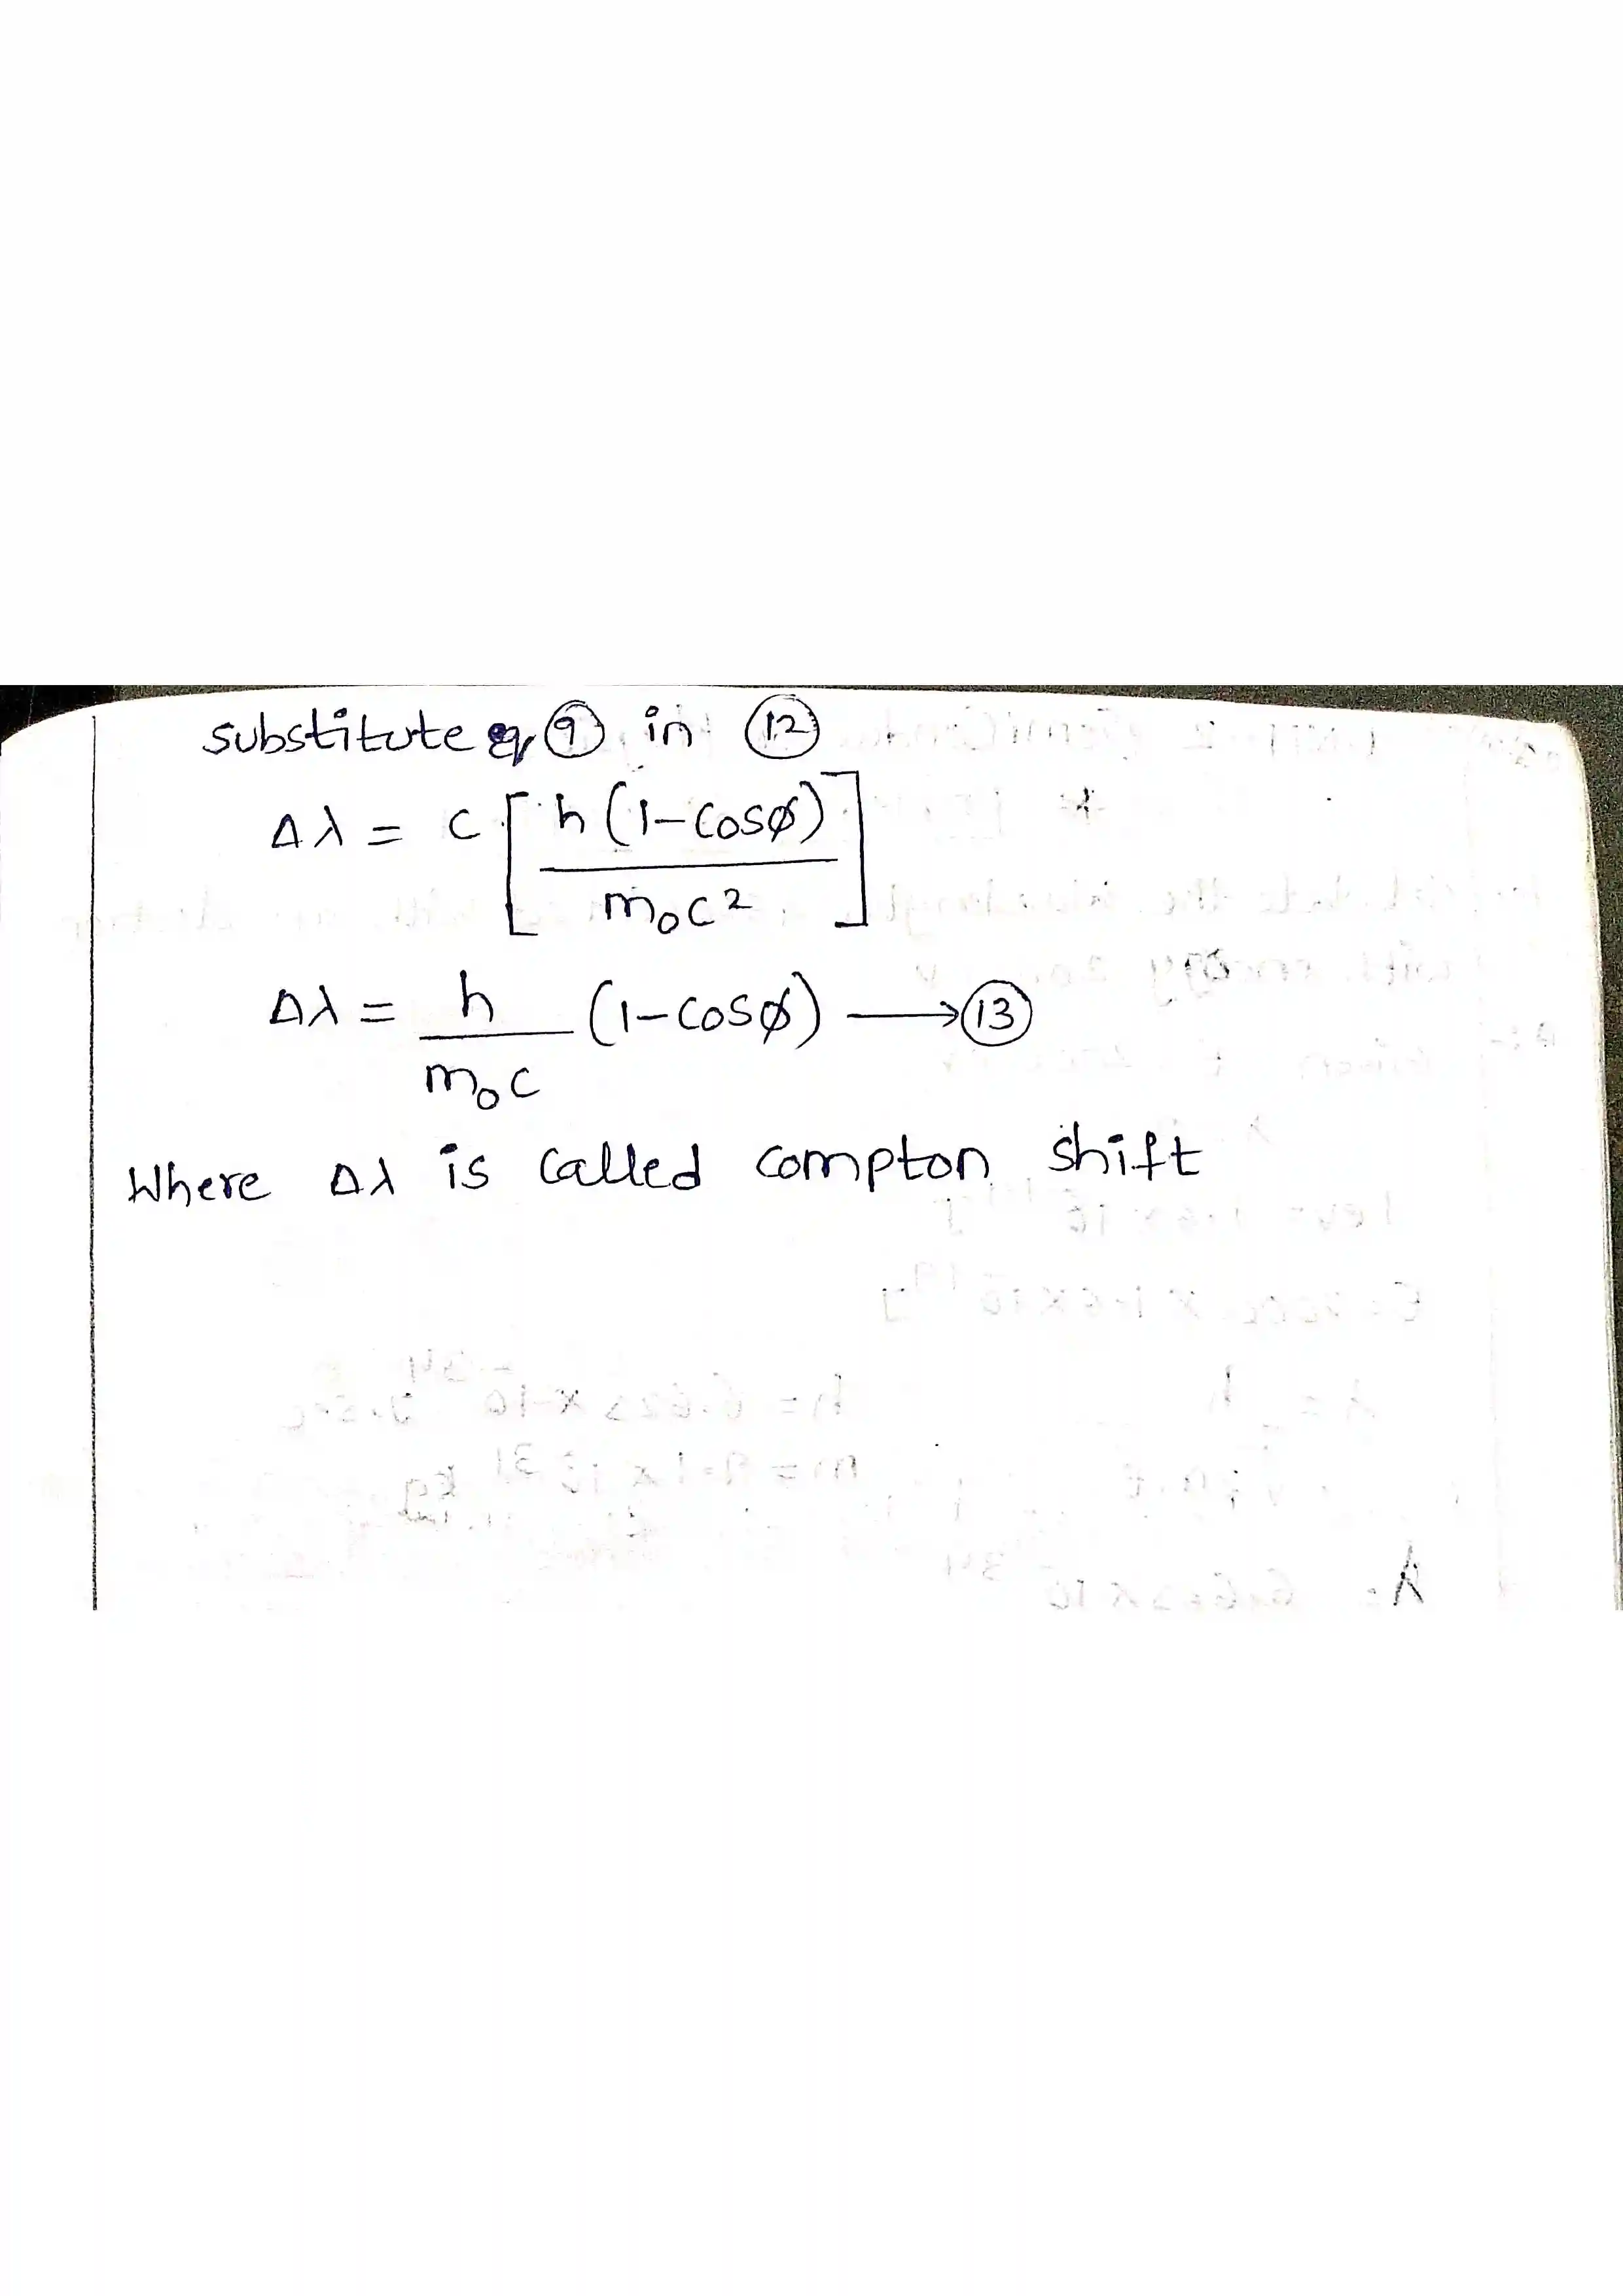 substitute eq ⑨ in ⑫
Δλ = c [ h(1-cosø) / m₀c² ]
Δλ = h / m₀c (1-cosø) ⟶ ⑬
Where Δλ is called compton shift